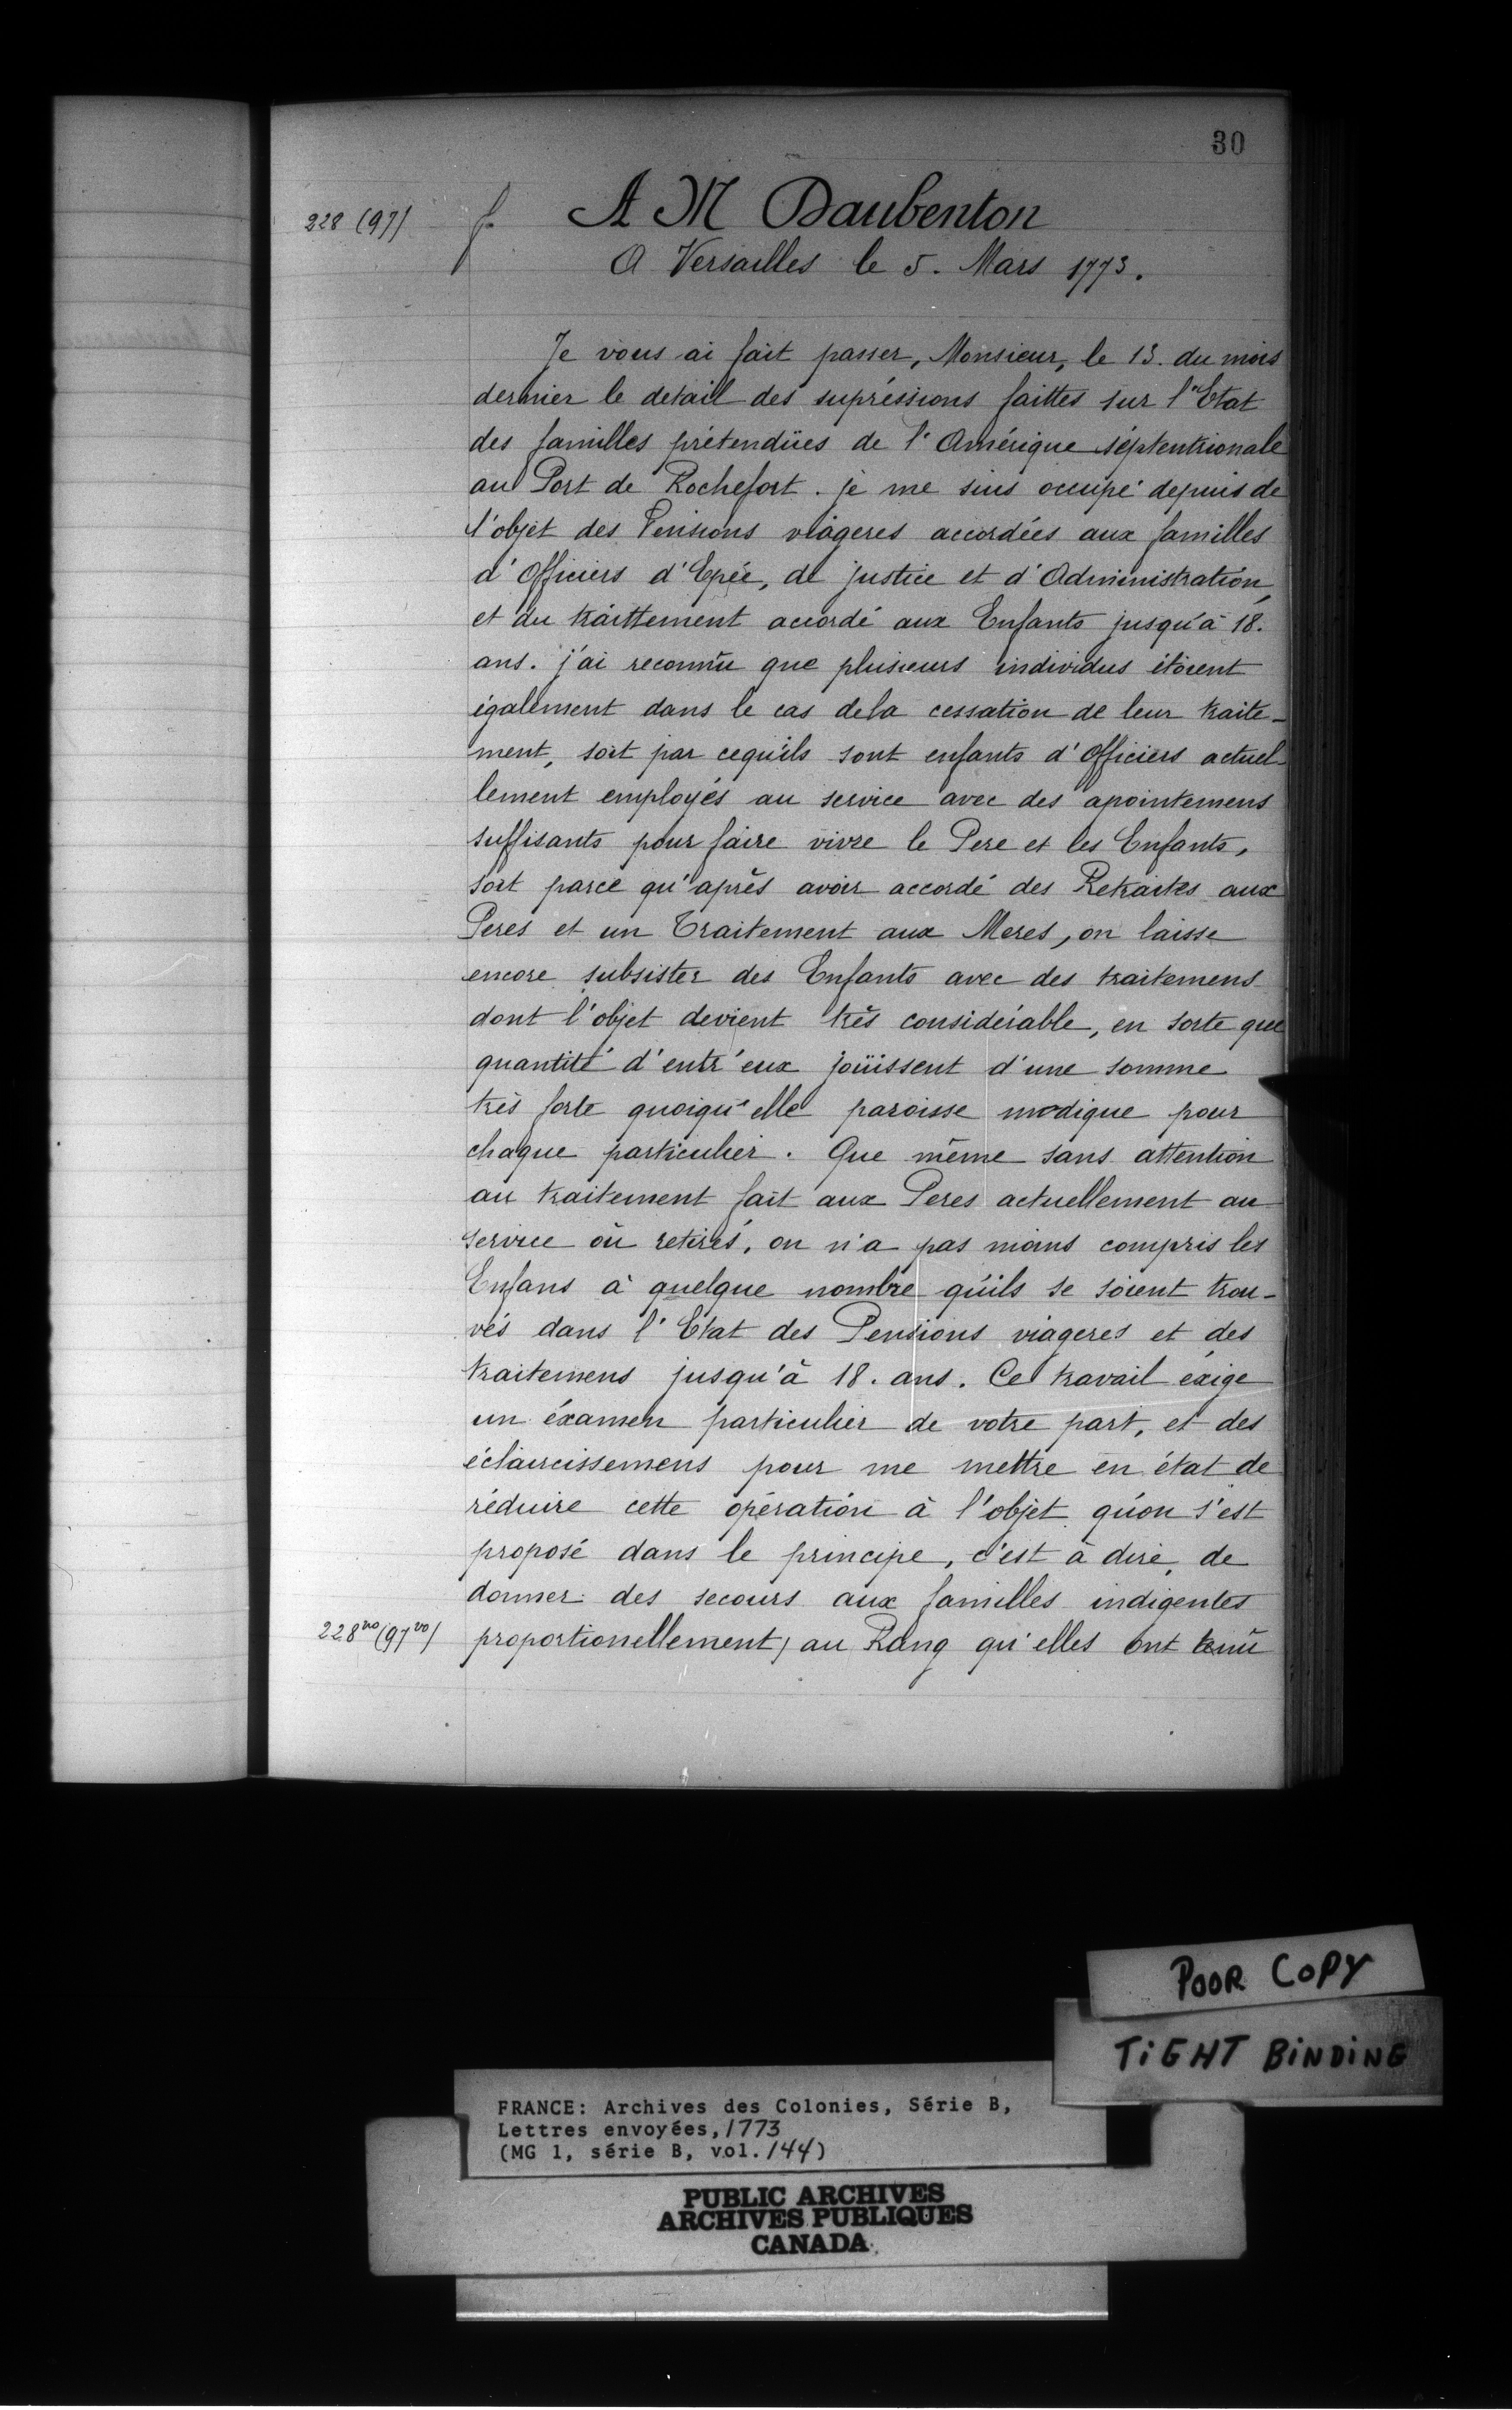 30
228 (97) f. A M Daubenton
A Versailles le 5. Mars 1773.
Je vous ai fait passer, Monsieur, le 13. du mois
dernier le detail des supréssions faittes sur l'Etat
des familles prétendües de l'Amérique séptentrionale
au Port de Rochefort. je me suis occupé depuis de
l'objet des Pensions viageres accordées aux familles
d'Officiers d'Epée, de justice et d'Administration,
et du traittement accordé aux Enfants jusqu'à 18.
ans. j'ai reconnû que plusieurs individus étoient
également dans le cas dela cessation de leur traite-
ment, soit par cequ'ils sont enfants d'Officiers actuel-
lement employés au service avec des apointemens
suffisants pour faire vivre le Pere et les Enfants,
soit parce qu'après avoir accordé des Retraites aux
Peres et un Traitement aux Meres, on laisse
encore subsister des Enfants avec des traitemens
dont l'objet devient très considérable, en sorte que
quantité d'entr'eux joüissent d'une somme
très forte quoiqu'elle paroisse modique pour
chaque particulier. Que même sans attention
au traitement fait aux Peres actuellement au
service où retirés, on n'a pas moins compris les
Enfans à quelque nombre qu'ils se soient trou-
vés dans l'Etat des Pensions viageres et des
traitemens jusqu'à 18. ans. Ce travail éxige
un éxamen particulier de votre part, et des
éclaircissemens pour me mettre en état de
réduire cette opération à l'objet qu'on s'est
proposé dans le principe, c'est à dire, de
donner des secours aux familles indigentes
228vo (97vo) proportionellement, au Rang qu'elles ont tenû
POOR COPY
TIGHT BINDING
FRANCE: Archives des Colonies, Série B,
Lettres envoyées, 1773
(MG 1, série B, vol. 144)
PUBLIC ARCHIVES
ARCHIVES PUBLIQUES
CANADA